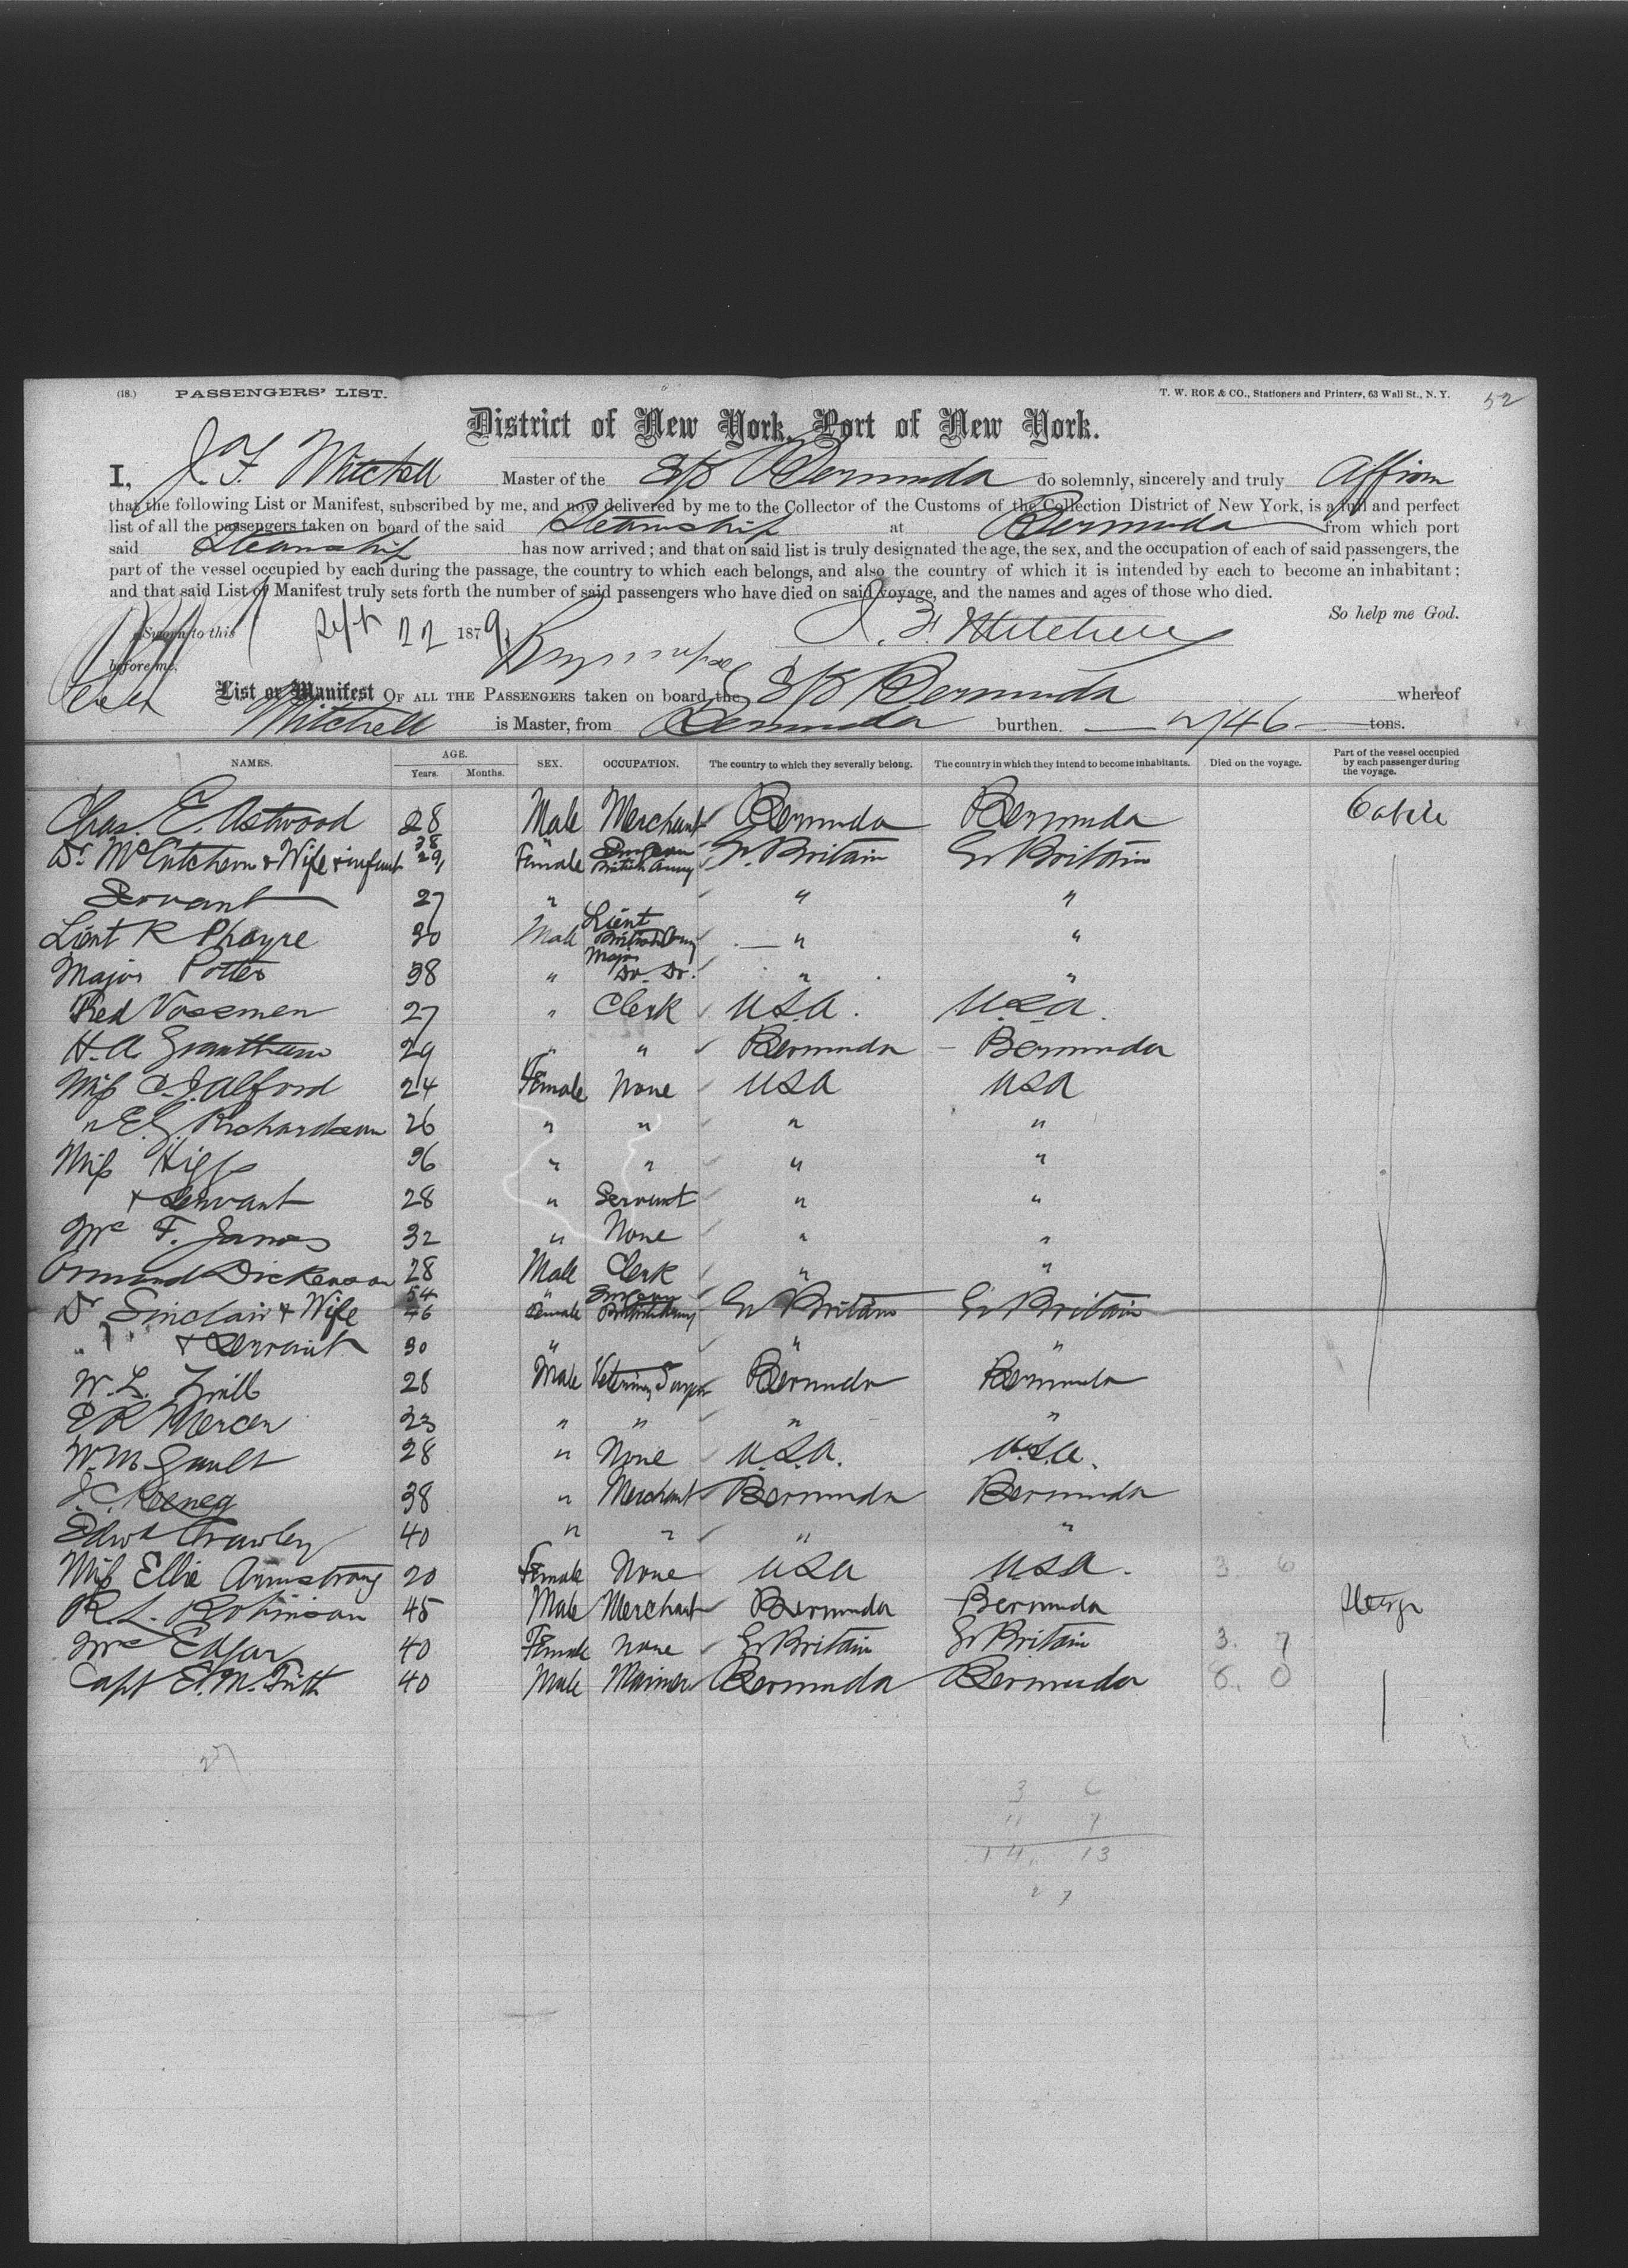 (18.) PASSENGERS' LIST. T. W. ROE & CO., Stationers and Printers, 63 Wall St., N. Y. 52
District of New York, Port of New York.
I, J. F. Mitchell Master of the S/S Bermuda do solemnly, sincerely and truly affirm
that the following List or Manifest, subscribed by me, and now delivered by me to the Collector of the Customs of the Collection District of New York, is a full and perfect
list of all the passengers taken on board of the said Steamship at Bermuda from which port
said Steamship has now arrived; and that on said list is truly designated the age, the sex, and the occupation of each of said passengers, the
part of the vessel occupied by each during the passage, the country to which each belongs, and also the country of which it is intended by each to become an inhabitant;
and that said List or Manifest truly sets forth the number of said passengers who have died on said voyage, and the names and ages of those who died.
So help me God.
Sworn to this Sept 22 1879 J. F. Mitchell
before me,
List or Manifest OF ALL THE PASSENGERS taken on board the S/S Bermuda whereof
Mitchell is Master, from Bermuda burthen. 746 tons.
NAMES. AGE. Years. Months. SEX. OCCUPATION. The country to which they severally belong. The country in which they intend to become inhabitants. Died on the voyage. Part of the vessel occupied by each passenger during the voyage.
Chas. E. Astwood 28 Male Merchant Bermuda Bermuda
Dr McCutcheon & Wife & infant 38 29 " Female Surgeon British Army Gr Britain Gr Britain
Servant 27 " " "
Lieut R Phayre 30 Male Lieut British Army " "
Major Potter 38 " Major Do. Do. " "
Fred Vossmen 27 " Clerk U.S.A. U.S.A.
H. A. Grantham 29 " " Bermuda Bermuda
Miss C. J. Alford 24 Female None USA USA
" E. G. Richardson 26 " " " "
Miss Higgs 36 " " " "
& Servant 28 " Servant " "
Mrs F. James 32 " None " "
Ormond Dickenson 28 Male Clerk " "
Dr Sinclair & Wife 54 46 " Female Surgeon British Army Gr Britain Gr Britain
" & Servant 30 " " "
W. L. 28 Male Veterinary Surgeon Bermuda Bermuda
E R Mercer 23 " " " "
W. M. Gault 28 " None U.S.A. U.S.A.
J. C. 38 " Merchant Bermuda Bermuda
Edwd Crawley 40 " " " "
Miss Ellie Armstrong 20 Female None USA USA. 3 6
R. L. Robinson 45 Male Merchant Bermuda Bermuda
Mrs Edgar 40 Female None Gr Britain Gr Britain 3. 7
Capt E. M. Frith 40 Male Mariner Bermuda Bermuda 8. 0
27
3 6
11 7
14, 13
27